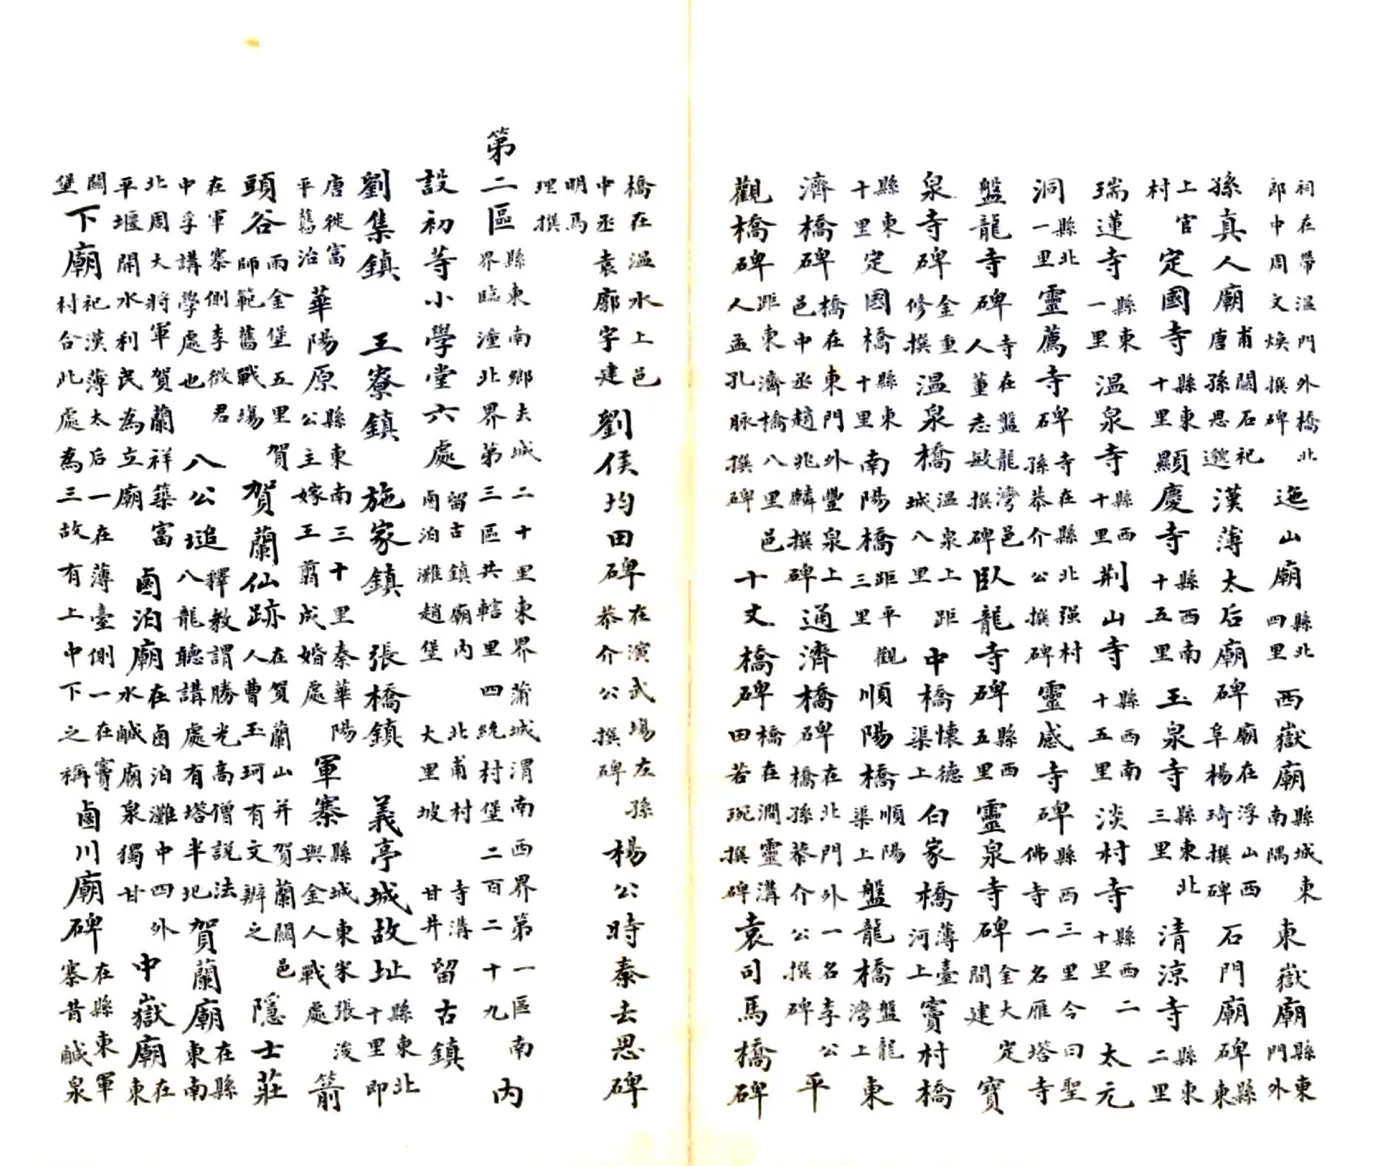 祠在帶温門外橋北郎中周文煥撰碑 迤山廟縣北四里 西嶽廟縣城東南隅 東嶽廟縣東門外
孫真人廟甫閣石祀唐孫思邈 漢薄太后廟碑廟在浮山西阜楊琦撰碑 石門廟碑縣東
上官村 定國寺縣東十里 顯慶寺縣西南十五里 玉泉寺縣東北三里 清涼寺縣東二里
瑞蓮寺縣東一里 温泉寺縣西十里 荆山寺縣西南十五里 淡村寺縣西二十里 太元
洞縣北一里 靈薦寺碑寺在縣北强村孫恭介公撰碑 靈感寺碑縣西三里今曰聖佛寺一名雁塔寺
盤龍寺碑寺在盤龍灣邑人董志敏撰碑 臥龍寺碑縣西五里 靈泉寺碑金大定間建 寶
泉寺碑金重修撰 温泉橋温泉上距城八里 中橋懷德渠上 白家橋薄臺河上 竇村橋
縣東十里 定國橋縣東十里 南陽橋距平觀三里 順陽橋順陽渠上 盤龍橋盤龍灣上 東
濟橋碑橋在東門外豐泉上邑中丞趙兆麟撰碑 通濟橋碑在北門外一名李公橋孫恭介公撰碑 平
觀橋碑距東濟橋八里邑人孟孔脉撰碑 十丈橋碑橋在澗靈溝田若琬撰碑 袁司馬橋碑
橋在温水上邑中丞袁廓宇建 劉侯均田碑在演武場左孫恭介公撰碑 楊公時秦去思碑
明馬理撰
第二區縣東南鄉去城二十里東界蒲城渭南西界第一區南界臨潼北界第三區共轄里四統村堡二百二十九 内
設初等小學堂六處留古鎮廟内 鹵泊灘趙堡 北甫村 大里坡 寺溝 甘井 留古鎮
劉集鎮 王寮鎮 施家鎮 張橋鎮 義亭城故址縣東北十里即
唐徙富平舊治 華陽原縣東南三十里秦華陽公主嫁王翦成婚處 軍寨縣城東宋張浚與金人戰處 箭
頭谷雨金堡五里賀師範舊戰塲 賀蘭仙跡在賀蘭山并賀蘭關邑人曹玉珂有文辨之 隱士莊
在軍寨側李微君中孚講學處也 八公塠釋教謂勝光高僧説法八龍聽講處有塔半圮 賀蘭廟在縣東南
北周大將軍賀蘭祥築富平堰開水利民為立廟 鹵泊廟在鹵泊灘中四外水鹹廟泉獨甘 中嶽廟在東
關堡 下廟祀漢薄太后一在薄臺側一在竇村合此處為三故有上中下之稱 鹵川廟碑在縣東軍寨昔鹹泉